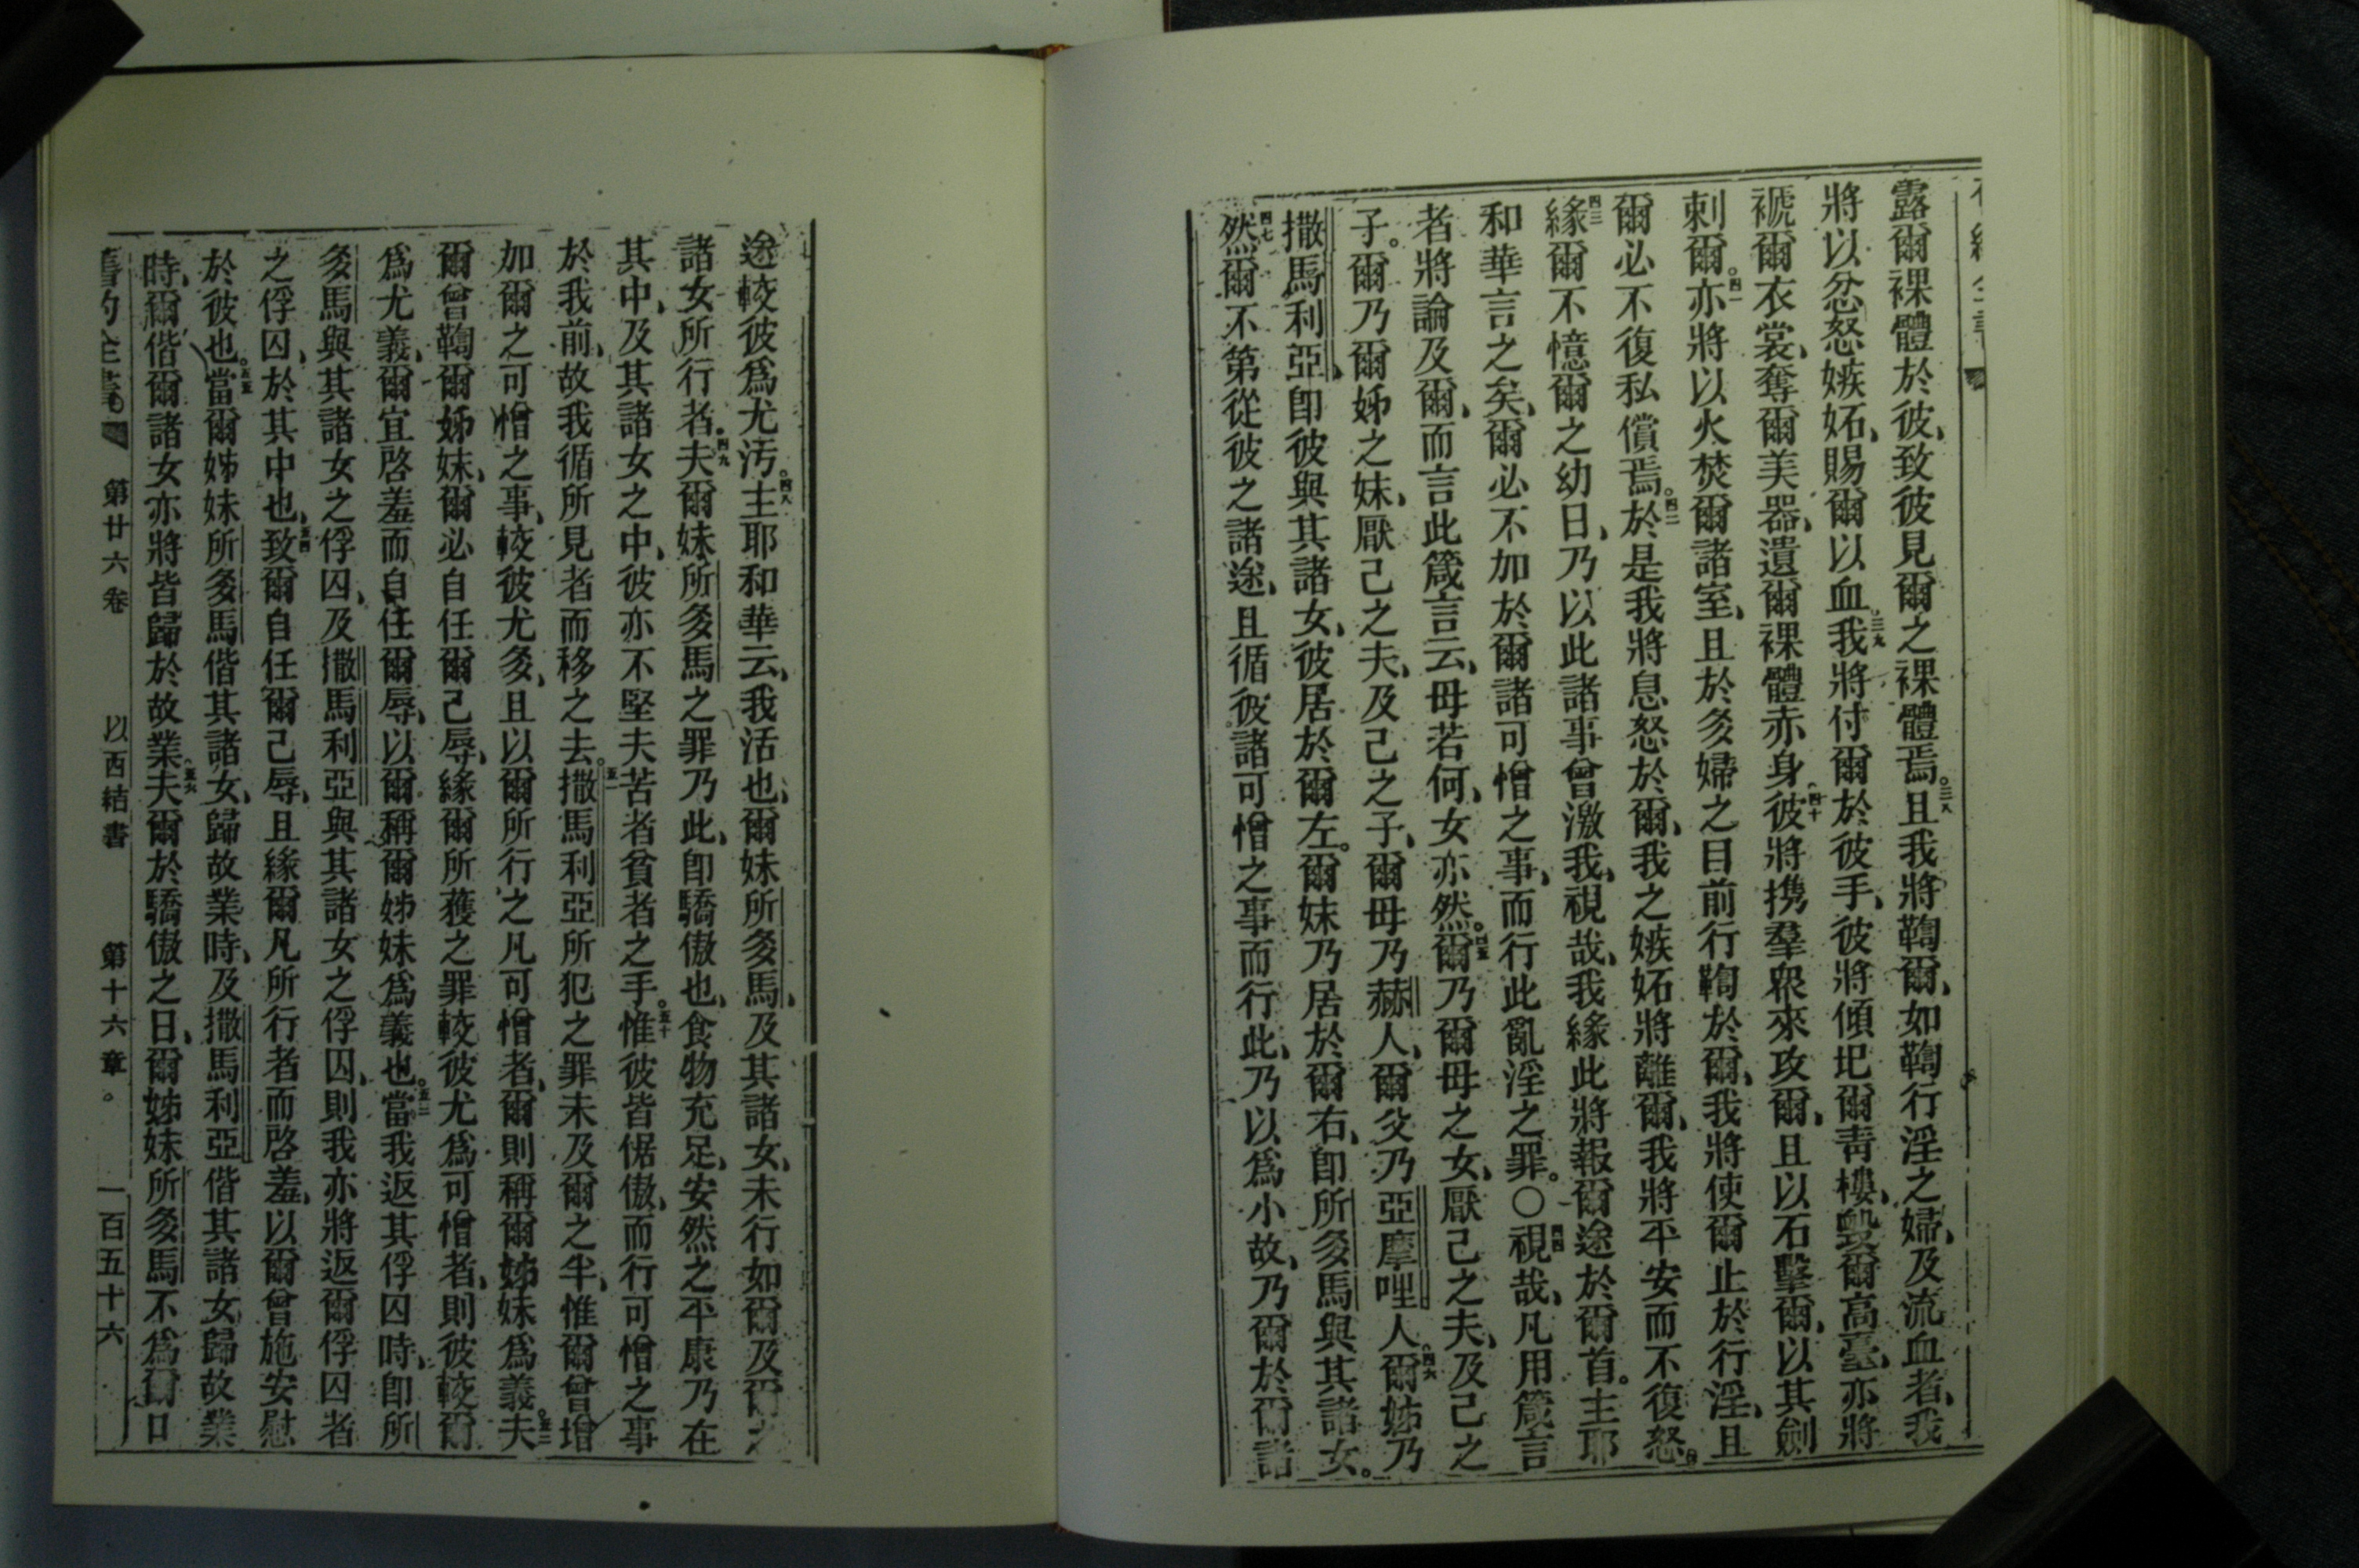 露爾裸體於彼、致彼見爾之裸體焉。三八且我將鞫爾、如鞫行淫之婦、及流血者、我
將以忿怒嫉妬、賜爾以血。三九我將付爾於彼手、彼將傾圯爾靑樓、毀爾高臺、亦將
褫爾衣裳、奪爾美器、遺爾裸體赤身。四十彼將携羣衆來攻爾、且以石擊爾、以其劍
刺爾。四一亦將以火焚爾諸室、且於多婦之目前行鞫於爾、我將使爾止於行淫、且
爾必不復私償焉。四二於是我將息怒於爾、我之嫉妬將離爾、我將平安而不復怒。
四三緣爾不憶爾之幼日、乃以此諸事曾激我、視哉、我緣此將報爾途於爾首。主耶
和華言之矣、爾必不加於爾諸可憎之事、而行此亂淫之罪。〇四四視哉、凡用箴言
者將論及爾、而言此箴言云、母若何、女亦然。四五爾乃爾母之女、厭己之夫、及己之
子。爾乃爾姊之妹、厭己之夫、及己之子、爾母乃赫人、爾父乃亞摩哩人。四六爾姊乃
撒馬利亞、卽彼與其諸女、彼居於爾左。爾妹乃居於爾右、卽所多馬與其諸女。
四七然爾不第從彼之諸途、且循彼諸可憎之事而行此、乃以爲小故、乃爾於爾諸
途較彼爲尤汚。四八主耶和華云、我活也、爾妹所多馬、及其諸女、未行如爾及爾之
諸女所行者。四九夫爾妹所多馬之罪乃此、卽驕傲也、食物充足、安然之平康乃在
其中、及其諸女之中、彼亦不堅夫苦者貧者之手。五十惟彼皆倨傲、而行可憎之事
於我前、故我循所見者而移之去。五一撒馬利亞所犯之罪未及爾之半、惟爾曾增
加爾之可憎之事、較彼尤多、且以爾所行之凡可憎者、爾則稱爾姊妹爲義。五二夫
爾曾鞫爾姊妹、爾必自任爾己辱、緣爾所獲之罪較彼尤爲可憎者、則彼較爾
爲尤義、爾宜啓羞而自任爾辱、以爾稱爾姊妹爲義也。五三當我返其俘囚時、卽所
多馬與其諸女之俘囚、及撒馬利亞與其諸女之俘囚、則我亦將返爾俘囚者
之俘囚、於其中也、五四致爾自任爾己辱、且緣爾凡所行者而啓羞、以爾曾施安慰
於彼也。五五當爾姊妹所多馬偕其諸女、歸故業時、及撒馬利亞偕其諸女歸故業
時、爾偕爾諸女亦將皆歸於故業。五六夫爾於驕傲之日、爾姊妹所多馬不爲爾口
舊約全書 第廿六卷 以西結書 第十六章。 一百五十六